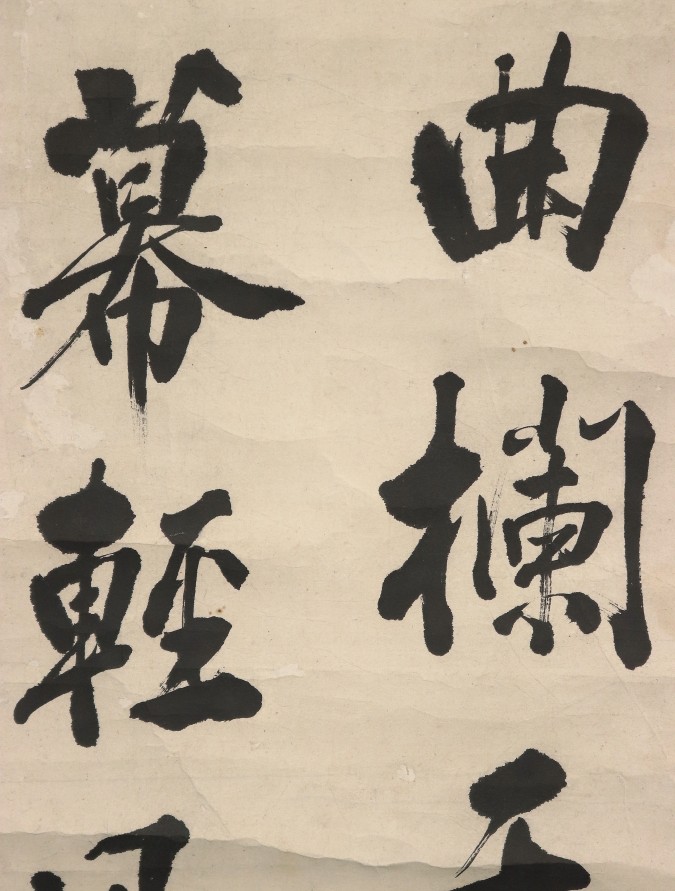 曲欄
幕輕